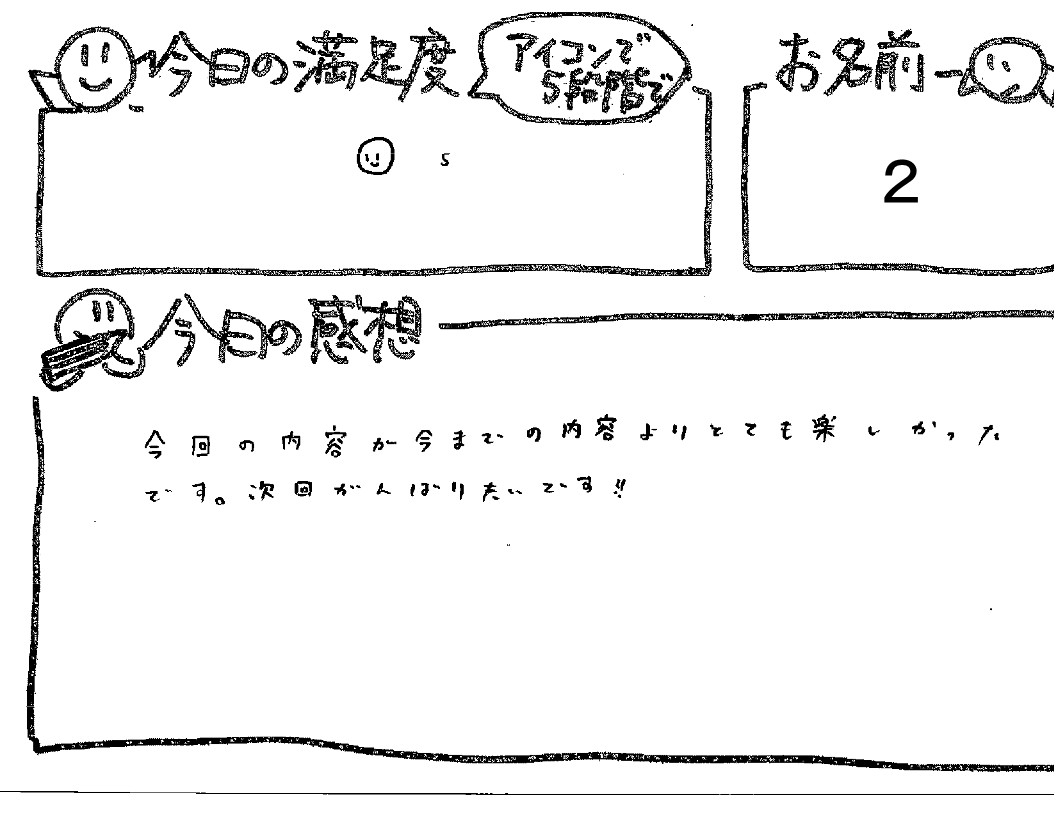 今日の満足度
アイコンで
5段階で
お名前
5
2
今日の感想
今回の内容が今までの内容よりとても楽しかった
です。次回がんばりたいです!!